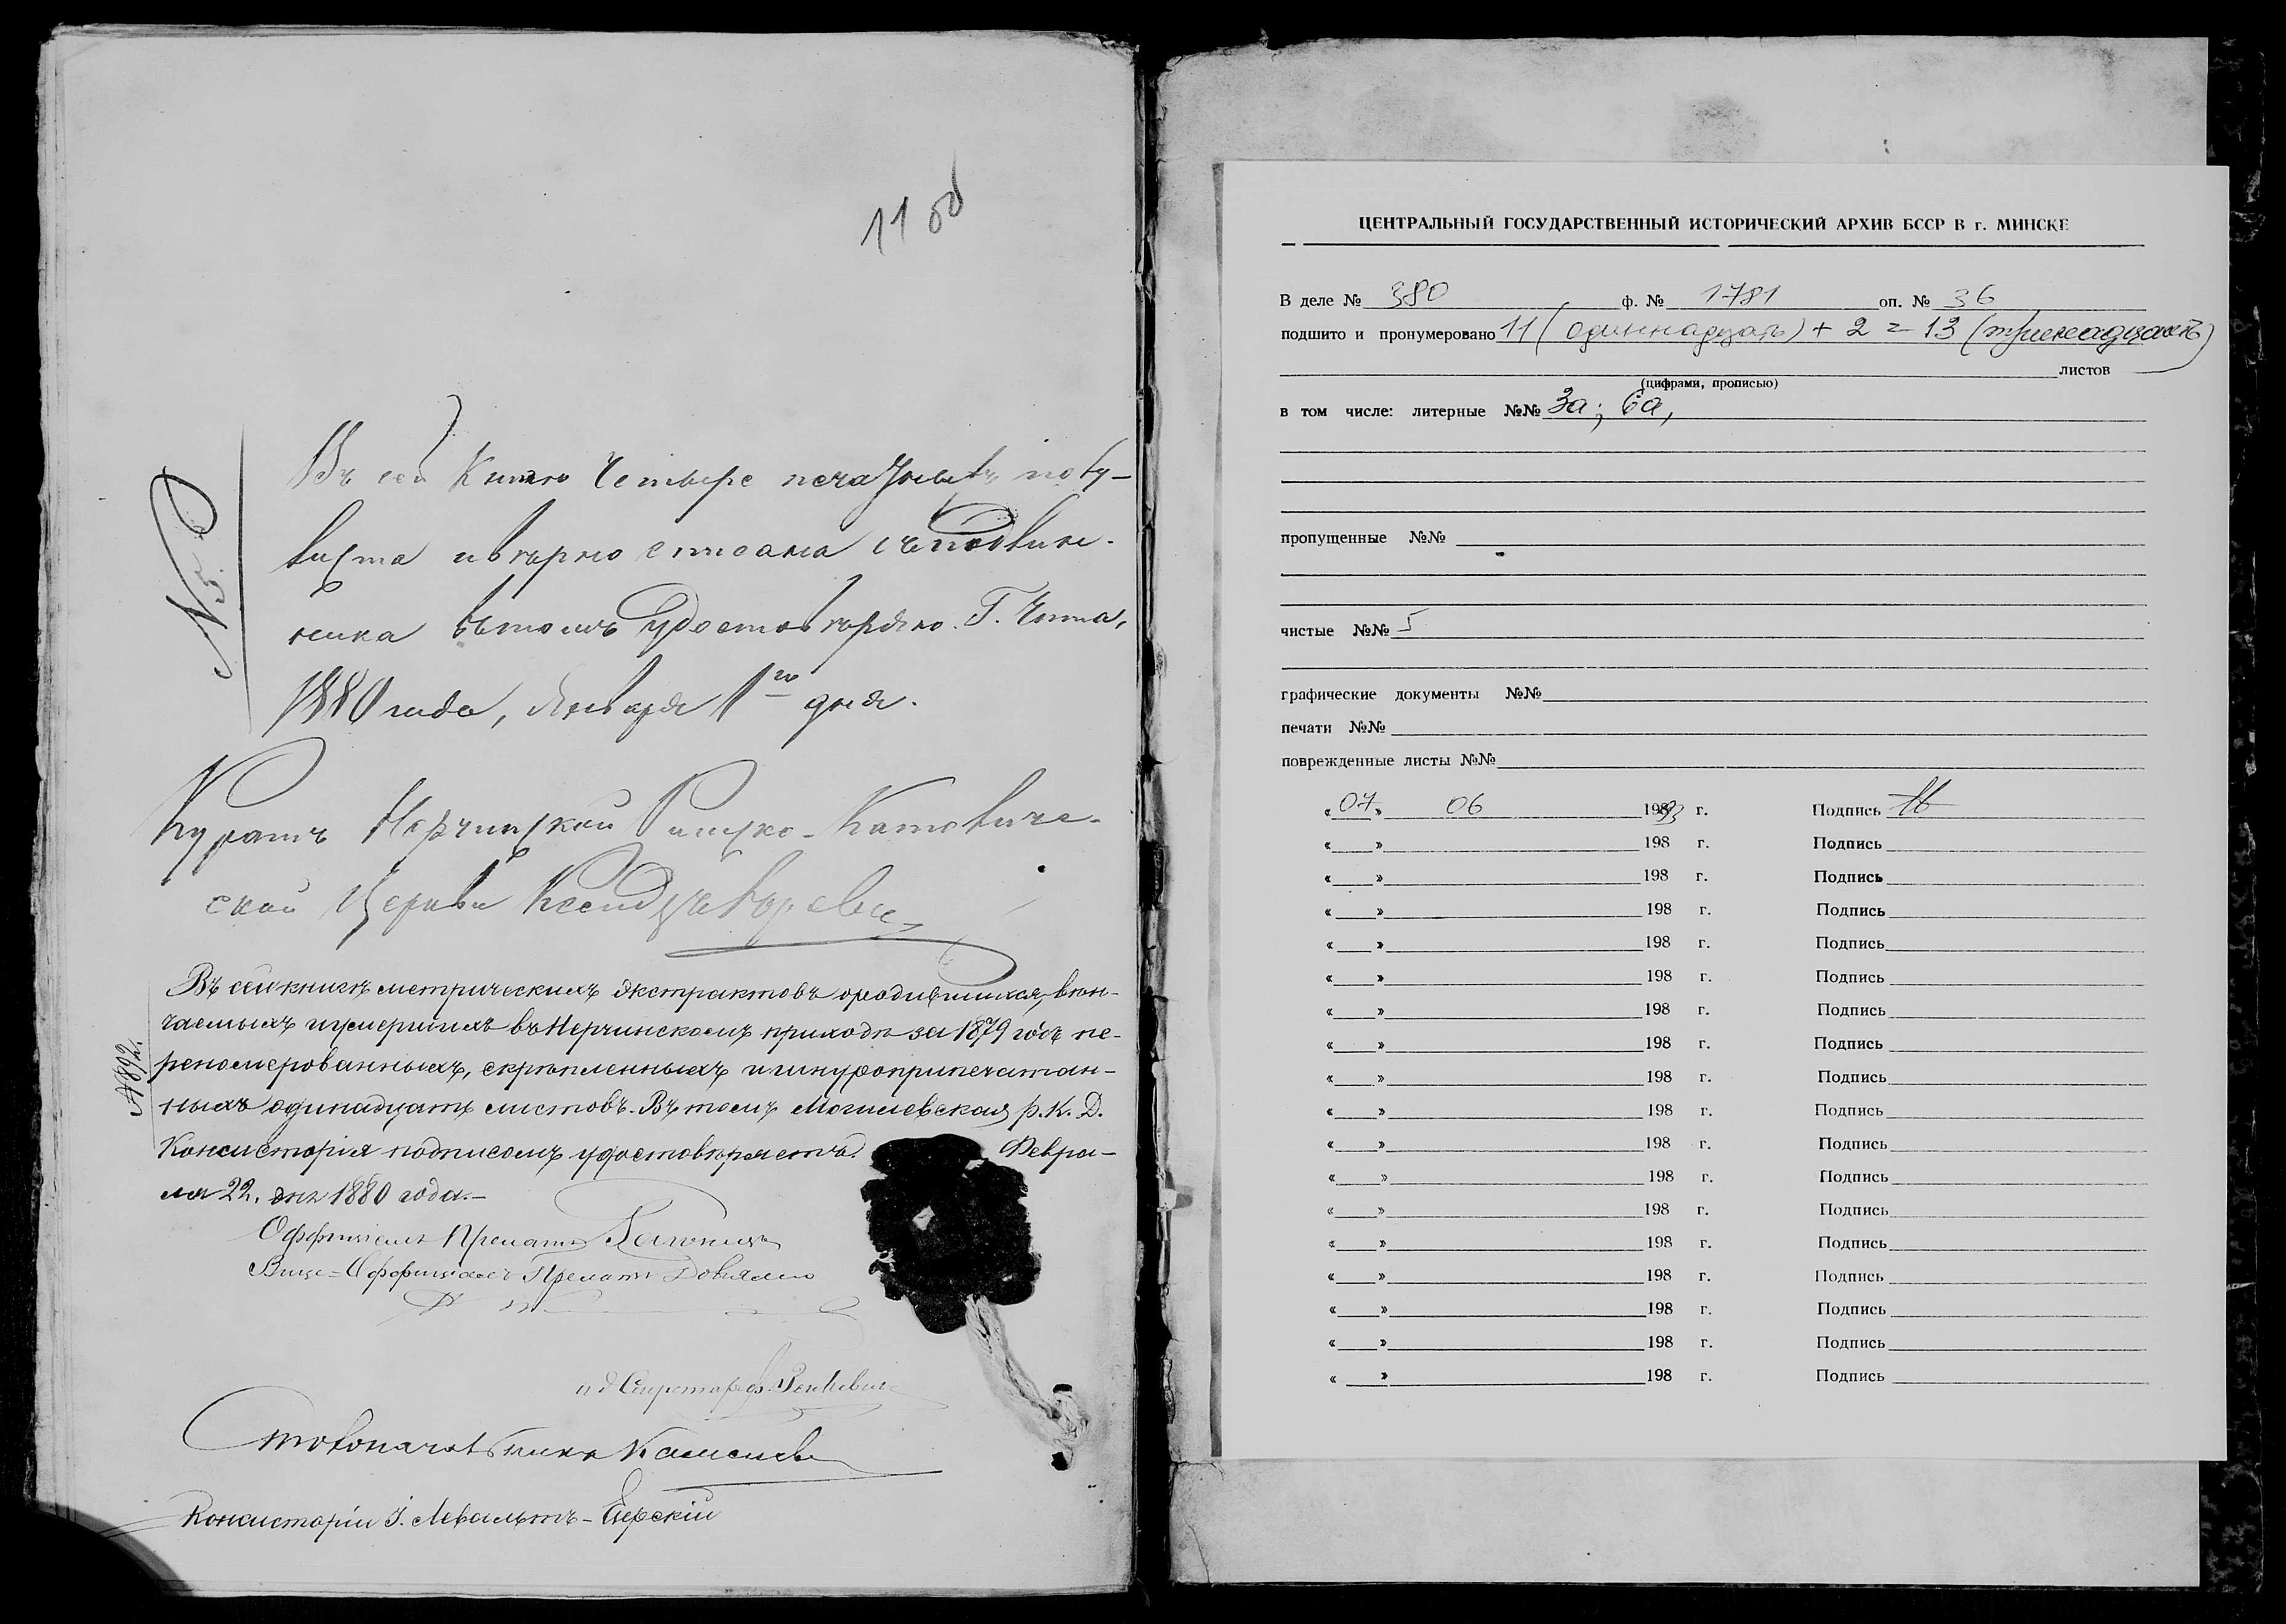 11 об
№ 5.
Въ сей Книгѣ Четыре печатныхъ полу-
листа и вѣрно списана съ подлин-
ника въ томъ удостовѣряю. Г. Чита,
1880 года, Января 1го дня.
Куратъ Нерчинской Римско-Католиче-
ской Церкви Ксендзъ
№ 892.
Въ сей книгѣ метрическихъ экстрактовъ о родившихся, вѣн-
чаемыхъ и умершихъ въ Нерчинскомъ приходѣ за 1879 годъ пе-
реномерованныхъ, скрѣпленныхъ и шнуроприпечатан-
ныхъ одинадцать листовъ. Въ томъ Могилевская р. К. Д.
Консисторія подписомъ удостовѣряетъ. Февра-
ля 22. дня 1880 года.-
Оффиціалъ Прелатъ
Вице-Оффиціалъ Прелатъ Довгялло
и д Секретаря Зенкевичъ
Столоначальника
Консисторіи I.
ЦЕНТРАЛЬНЫЙ ГОСУДАРСТВЕННЫЙ ИСТОРИЧЕСКИЙ АРХИВ БССР В г. МИНСКЕ
В деле № 380 ф. № 1781 оп. № 36
подшито и пронумеровано 11 (одиннадцать) + 2 = 13 (тринадцать)
листов
(цифрами, прописью)
в том числе: литерные №№ 3а; 6а,
пропущенные №№ -
чистые №№ 5
графические документы №№
печати №№
поврежденные листы №№
«07» 06 1993 г. Подпись
« » 198 г. Подпись
« » 198 г. Подпись
« » 198 г. Подпись
« » 198 г. Подпись
« » 198 г. Подпись
« » 198 г. Подпись
« » 198 г. Подпись
« » 198 г. Подпись
« » 198 г. Подпись
« » 198 г. Подпись
« » 198 г. Подпись
« » 198 г. Подпись
« » 198 г. Подпись
« » 198 г. Подпись
« » 198 г. Подпись
« » 198 г. Подпись
« » 198 г. Подпись